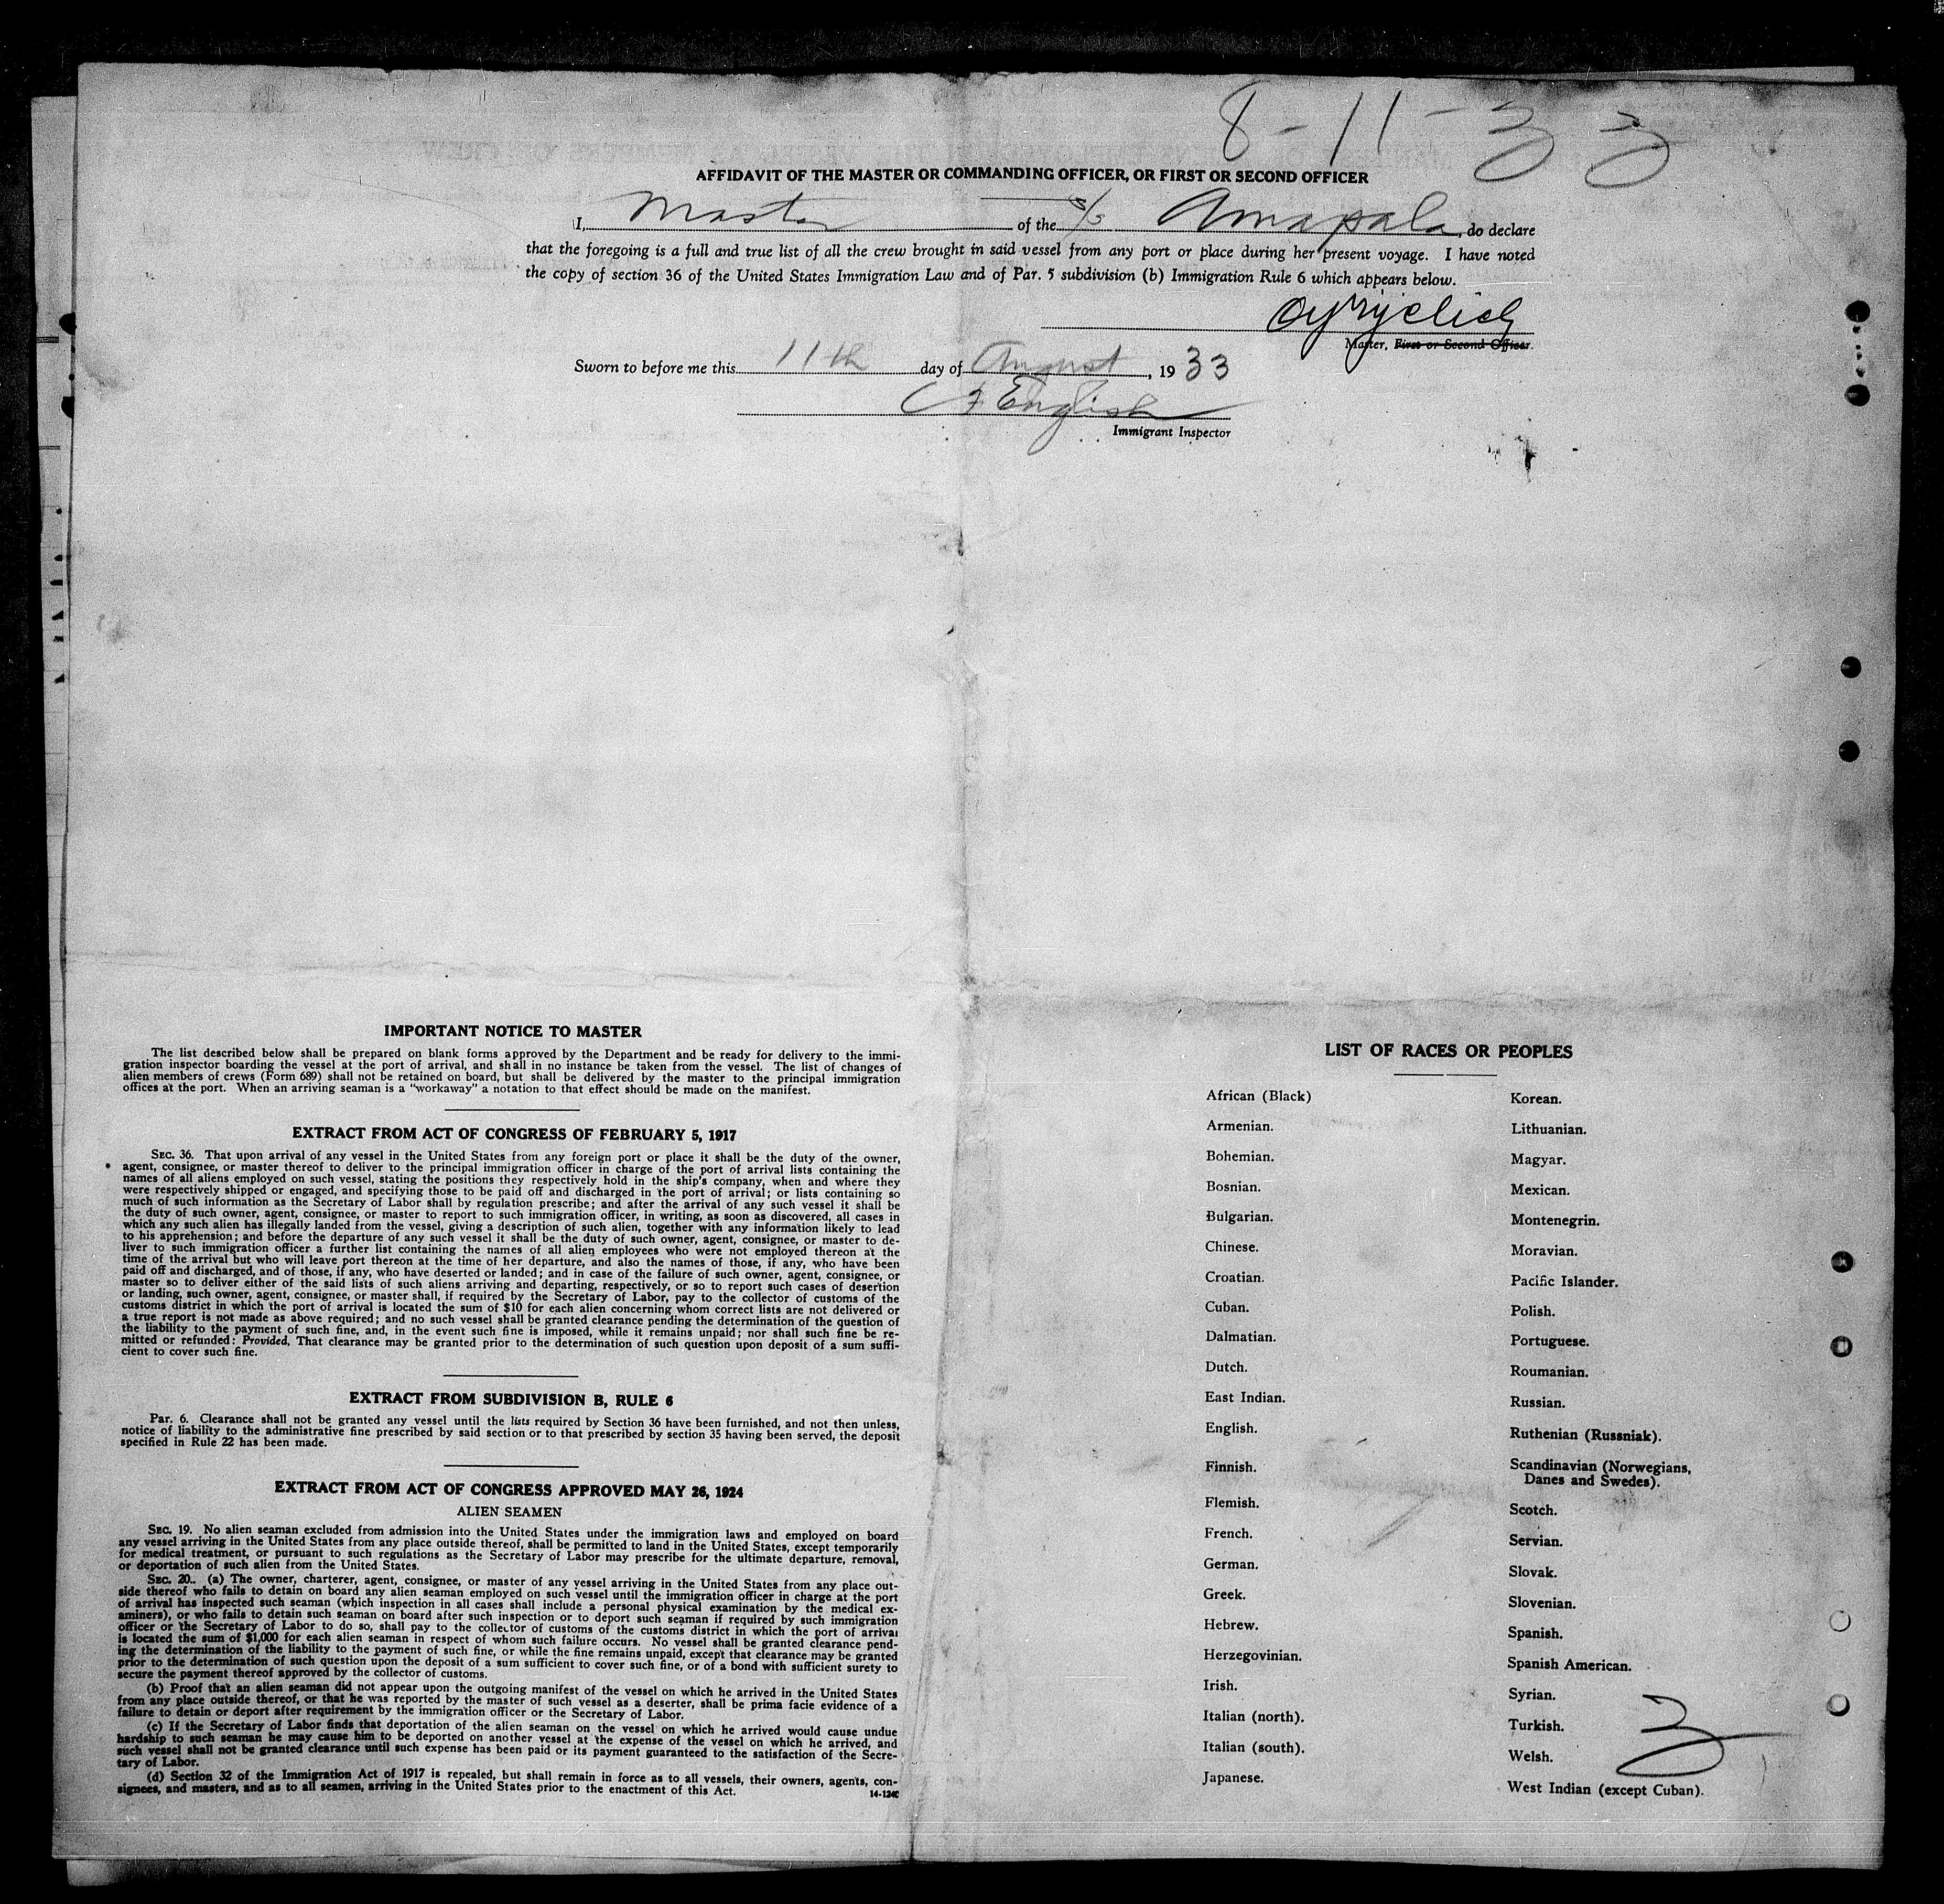 8-11-33
AFFIDAVIT OF THE MASTER OR COMMANDING OFFICER, OR FIRST OR SECOND OFFICER
I, Master of the S/S Amapala, do declare
that the foregoing is a full and true list of all the crew brought in said vessel from any port or place during her present voyage. I have noted
the copy of section 36 of the United States Immigration Law and of Par. 5 subdivision (b) Immigration Rule 6 which appears below.
Master, First or Second Officer.
Sworn to before me this 11th day of August, 1933
English
Immigrant Inspector
IMPORTANT NOTICE TO MASTER
The list described below shall be prepared on blank forms approved by the Department and be ready for delivery to the immi-
gration inspector boarding the vessel at the port of arrival, and shall in no instance be taken from the vessel. The list of changes of
alien members of crews (Form 689) shall not be retained on board, but shall be delivered by the master to the principal immigration
offices at the port. When an arriving seaman is a "workaway" a notation to that effect should be made on the manifest.
EXTRACT FROM ACT OF CONGRESS OF FEBRUARY 5, 1917
SEC. 36. That upon arrival of any vessel in the United States from any foreign port or place it shall be the duty of the owner,
agent, consignee, or master thereof to deliver to the principal immigration officer in charge of the port of arrival lists containing the
names of all aliens employed on such vessel, stating the positions they respectively hold in the ship's company, when and where they
were respectively shipped or engaged, and specifying those to be paid off and discharged in the port of arrival; or lists containing so
much of such information as the Secretary of Labor shall by regulation prescribe; and after the arrival of any such vessel it shall be
the duty of such owner, agent, consignee, or master to report to such immigration officer, in writing, as soon as discovered, all cases in
which any such alien has illegally landed from the vessel, giving a description of such alien, together with any information likely to lead
to his apprehension; and before the departure of any such vessel it shall be the duty of such owner, agent, consignee, or master to de-
liver to such immigration officer a further list containing the names of all alien employees who were not employed thereon at the
time of the arrival but who will leave port thereon at the time of her departure, and also the names of those, if any, who have been
paid off and discharged, and of those, if any, who have deserted or landed; and in case of the failure of such owner, agent, consignee, or
master so to deliver either of the said lists of such aliens arriving and departing, respectively, or so to report such cases of desertion
or landing, such owner, agent, consignee, or master shall, if required by the Secretary of Labor, pay to the collector of customs of the
customs district in which the port of arrival is located the sum of $10 for each alien concerning whom correct lists are not delivered or
a true report is not made as above required; and no such vessel shall be granted clearance pending the determination of the question of
the liability to the payment of such fine, and, in the event such fine is imposed, while it remains unpaid; nor shall such fine be re-
mitted or refunded: Provided, That clearance may be granted prior to the determination of such question upon deposit of a sum suffi-
cient to cover such fine.
EXTRACT FROM SUBDIVISION B, RULE 6
Par. 6. Clearance shall not be granted any vessel until the lists required by Section 36 have been furnished, and not then unless,
notice of liability to the administrative fine prescribed by said section or to that prescribed by section 35 having been served, the deposit
specified in Rule 22 has been made.
EXTRACT FROM ACT OF CONGRESS APPROVED MAY 26, 1924
ALIEN SEAMEN
SEC. 19. No alien seaman excluded from admission into the United States under the immigration laws and employed on board
any vessel arriving in the United States from any place outside thereof, shall be permitted to land in the United States, except temporarily
for medical treatment, or pursuant to such regulations as the Secretary of Labor may prescribe for the ultimate departure, removal,
or deportation of such alien from the United States.
SEC. 20. (a) The owner, charterer, agent, consignee, or master of any vessel arriving in the United States from any place out-
side thereof who fails to detain on board any alien seaman employed on such vessel until the immigration officer in charge at the port
of arrival has inspected such seaman (which inspection in all cases shall include a personal physical examination by the medical ex-
aminers), or who fails to detain such seaman on board after such inspection or to deport such seaman if required by such immigration
officer or the Secretary of Labor to do so, shall pay to the collector of customs of the customs district in which the port of arrival
is located the sum of $1,000 for each alien seaman in respect of whom such failure occurs. No vessel shall be granted clearance pend-
ing the determination of the liability to the payment of such fine, or while the fine remains unpaid, except that clearance may be granted
prior to the determination of such question upon the deposit of a sum sufficient to cover such fine, or of a bond with sufficient surety to
secure the payment thereof approved by the collector of customs.
(b) Proof that an alien seaman did not appear upon the outgoing manifest of the vessel on which he arrived in the United States
from any place outside thereof, or that he was reported by the master of such vessel as a deserter, shall be prima facie evidence of a
failure to detain or deport after requirement by the immigration officer or the Secretary of Labor.
(c) If the Secretary of Labor finds that deportation of the alien seaman on the vessel on which he arrived would cause undue
hardship to such seaman he may cause him to be deported on another vessel at the expense of the vessel on which he arrived, and
such vessel shall not be granted clearance until such expense has been paid or its payment guaranteed to the satisfaction of the Secre-
tary of Labor.
(d) Section 32 of the Immigration Act of 1917 is repealed, but shall remain in force as to all vessels, their owners, agents, con-
signees, and masters, and as to all seamen, arriving in the United States prior to the enactment of this Act.
LIST OF RACES OR PEOPLES
African (Black)
Armenian.
Bohemian.
Bosnian.
Bulgarian.
Chinese.
Croatian.
Cuban.
Dalmatian.
Dutch.
East Indian.
English.
Finnish.
Flemish.
French.
German.
Greek.
Hebrew.
Herzegovinian.
Irish.
Italian (north).
Italian (south).
Japanese.
Korean.
Lithuanian.
Magyar.
Mexican.
Montenegrin.
Moravian.
Pacific Islander.
Polish.
Portuguese.
Roumanian.
Russian.
Ruthenian (Russniak).
Scandinavian (Norwegians,
Danes and Swedes).
Scotch.
Servian.
Slovak.
Slovenian.
Spanish.
Spanish American.
Syrian.
Turkish.
Welsh.
West Indian (except Cuban).
3